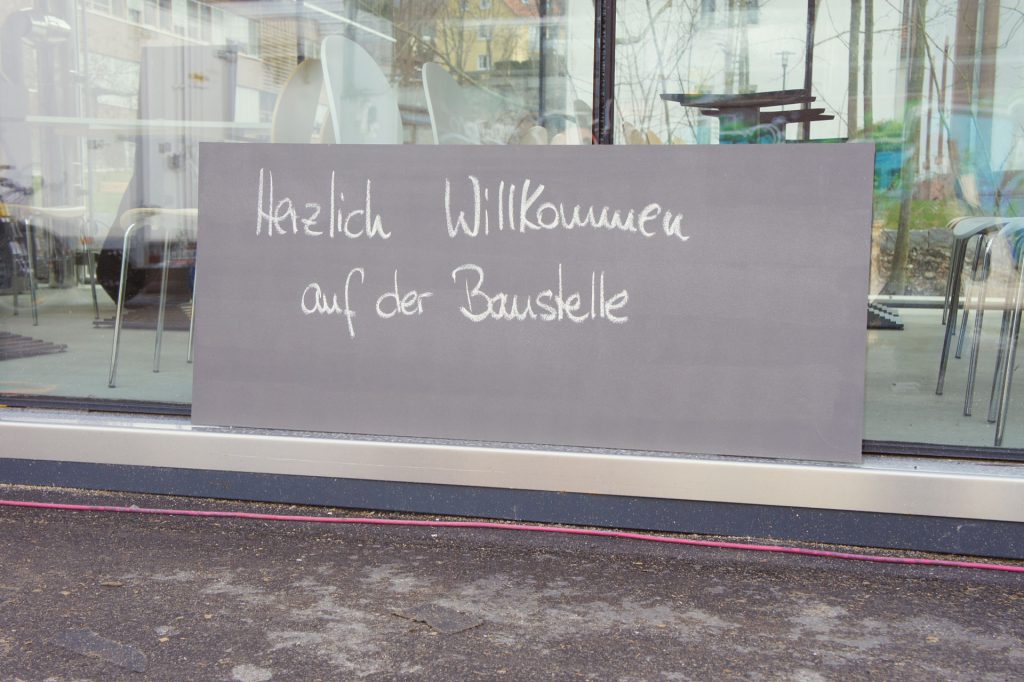 Herzlich Willkommen
auf der Baustelle